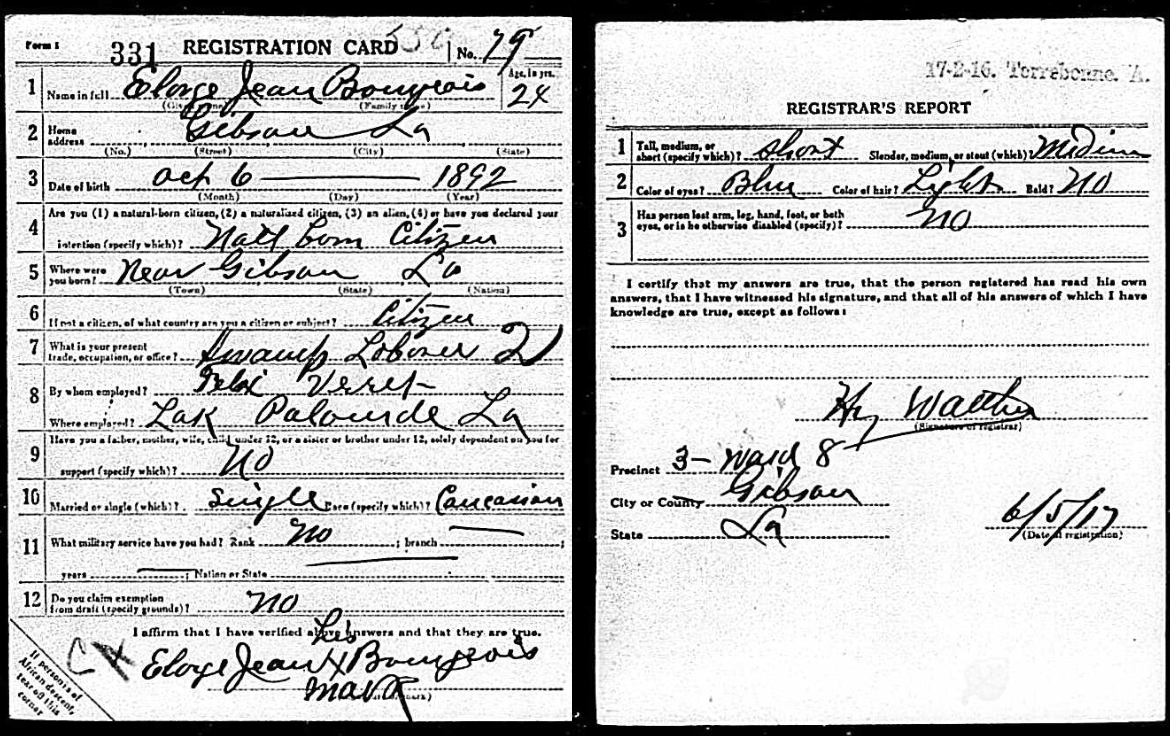 Form 1 331 REGISTRATION CARD No. 79
1 Name in full Elorge Jean Bourgeois Age, in yrs. 24
(Given name) (Family name)
2 Home address Gibson La
(No.) (Street) (City) (State)
3 Date of birth Oct 6 1892
(Month) (Day) (Year)
4 Are you (1) a natural-born citizen, (2) a naturalized citizen, (3) an alien, (4) or have you declared your
intention (specify which)? Natl born Citizen
5 Where were you born? Near Gibson La
(Town) (State) (Nation)
6 If not a citizen, of what country are you a citizen or subject? Citizen
7 What is your present trade, occupation, or office? Swamp Laborer 2
8 By whom employed? Felix Verret
Where employed? Lak Palourde La
9 Have you a father, mother, wife, child under 12, or a sister or brother under 12, solely dependent on you for
support (specify which)? No
10 Married or single (which)? Single Race (specify which)? Caucasian
11 What military service have you had? Rank No ; branch ;
years ; Nation or State
12 Do you claim exemption from draft (specify grounds)? No
I affirm that I have verified above answers and that they are true.
his
Elorge Jean X Bourgeois
mark
If person is of
African descent,
tear off this
corner
17-2-16. Terrebonne. A.
REGISTRAR'S REPORT
1 Tall, medium, or short (specify which)? Short Slender, medium, or stout (which)? Medium
2 Color of eyes? Blue Color of hair? Light Bald? No
3 Has person lost arm, leg, hand, foot, or both eyes, or is he otherwise disabled (specify)? No
I certify that my answers are true, that the person registered has read his own
answers, that I have witnessed his signature, and that all of his answers of which I have
knowledge are true, except as follows:
Hy Walther
(Signature of registrar)
Precinct 3 - Ward 8
City or County Gibson
State La
6/5/17
(Date of registration)